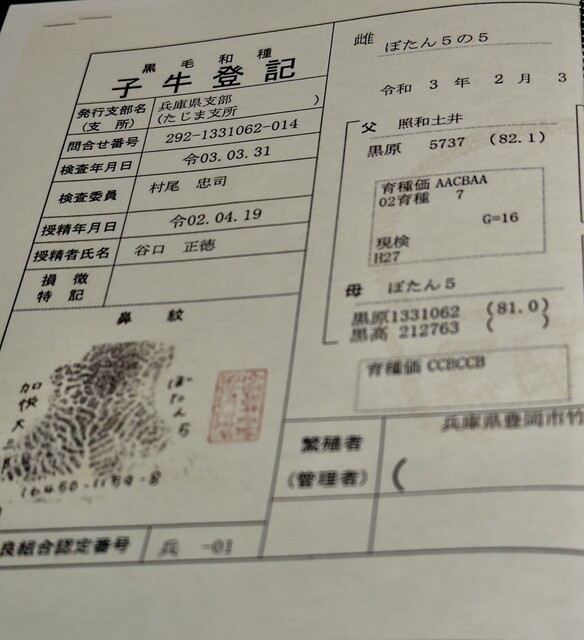 黒毛和種
子牛登記
発行支部名
(支所)
兵庫県支部
(たじま支所)
問合せ番号
292-1331062-014
検査年月日
令03.03.31
検査委員
村尾 忠司
授精年月日
令02.04.19
授精者氏名
谷口 正徳
損徴
特記
鼻紋
ぼたん5
16450-1159-8
良組合認定番号
兵 -01
雌 ぼたん5の5
令和 3 年 2 月 3
父 照和土井
黒原 5737 (82.1)
育種価 AACBAA
02育種 7
G=16
現検
H27
母 ぼたん5
黒原1331062 (81.0)
黒高 212763 ( )
育種価 CCBCCB
繁殖者
(管理者)
兵庫県豊岡市竹
(